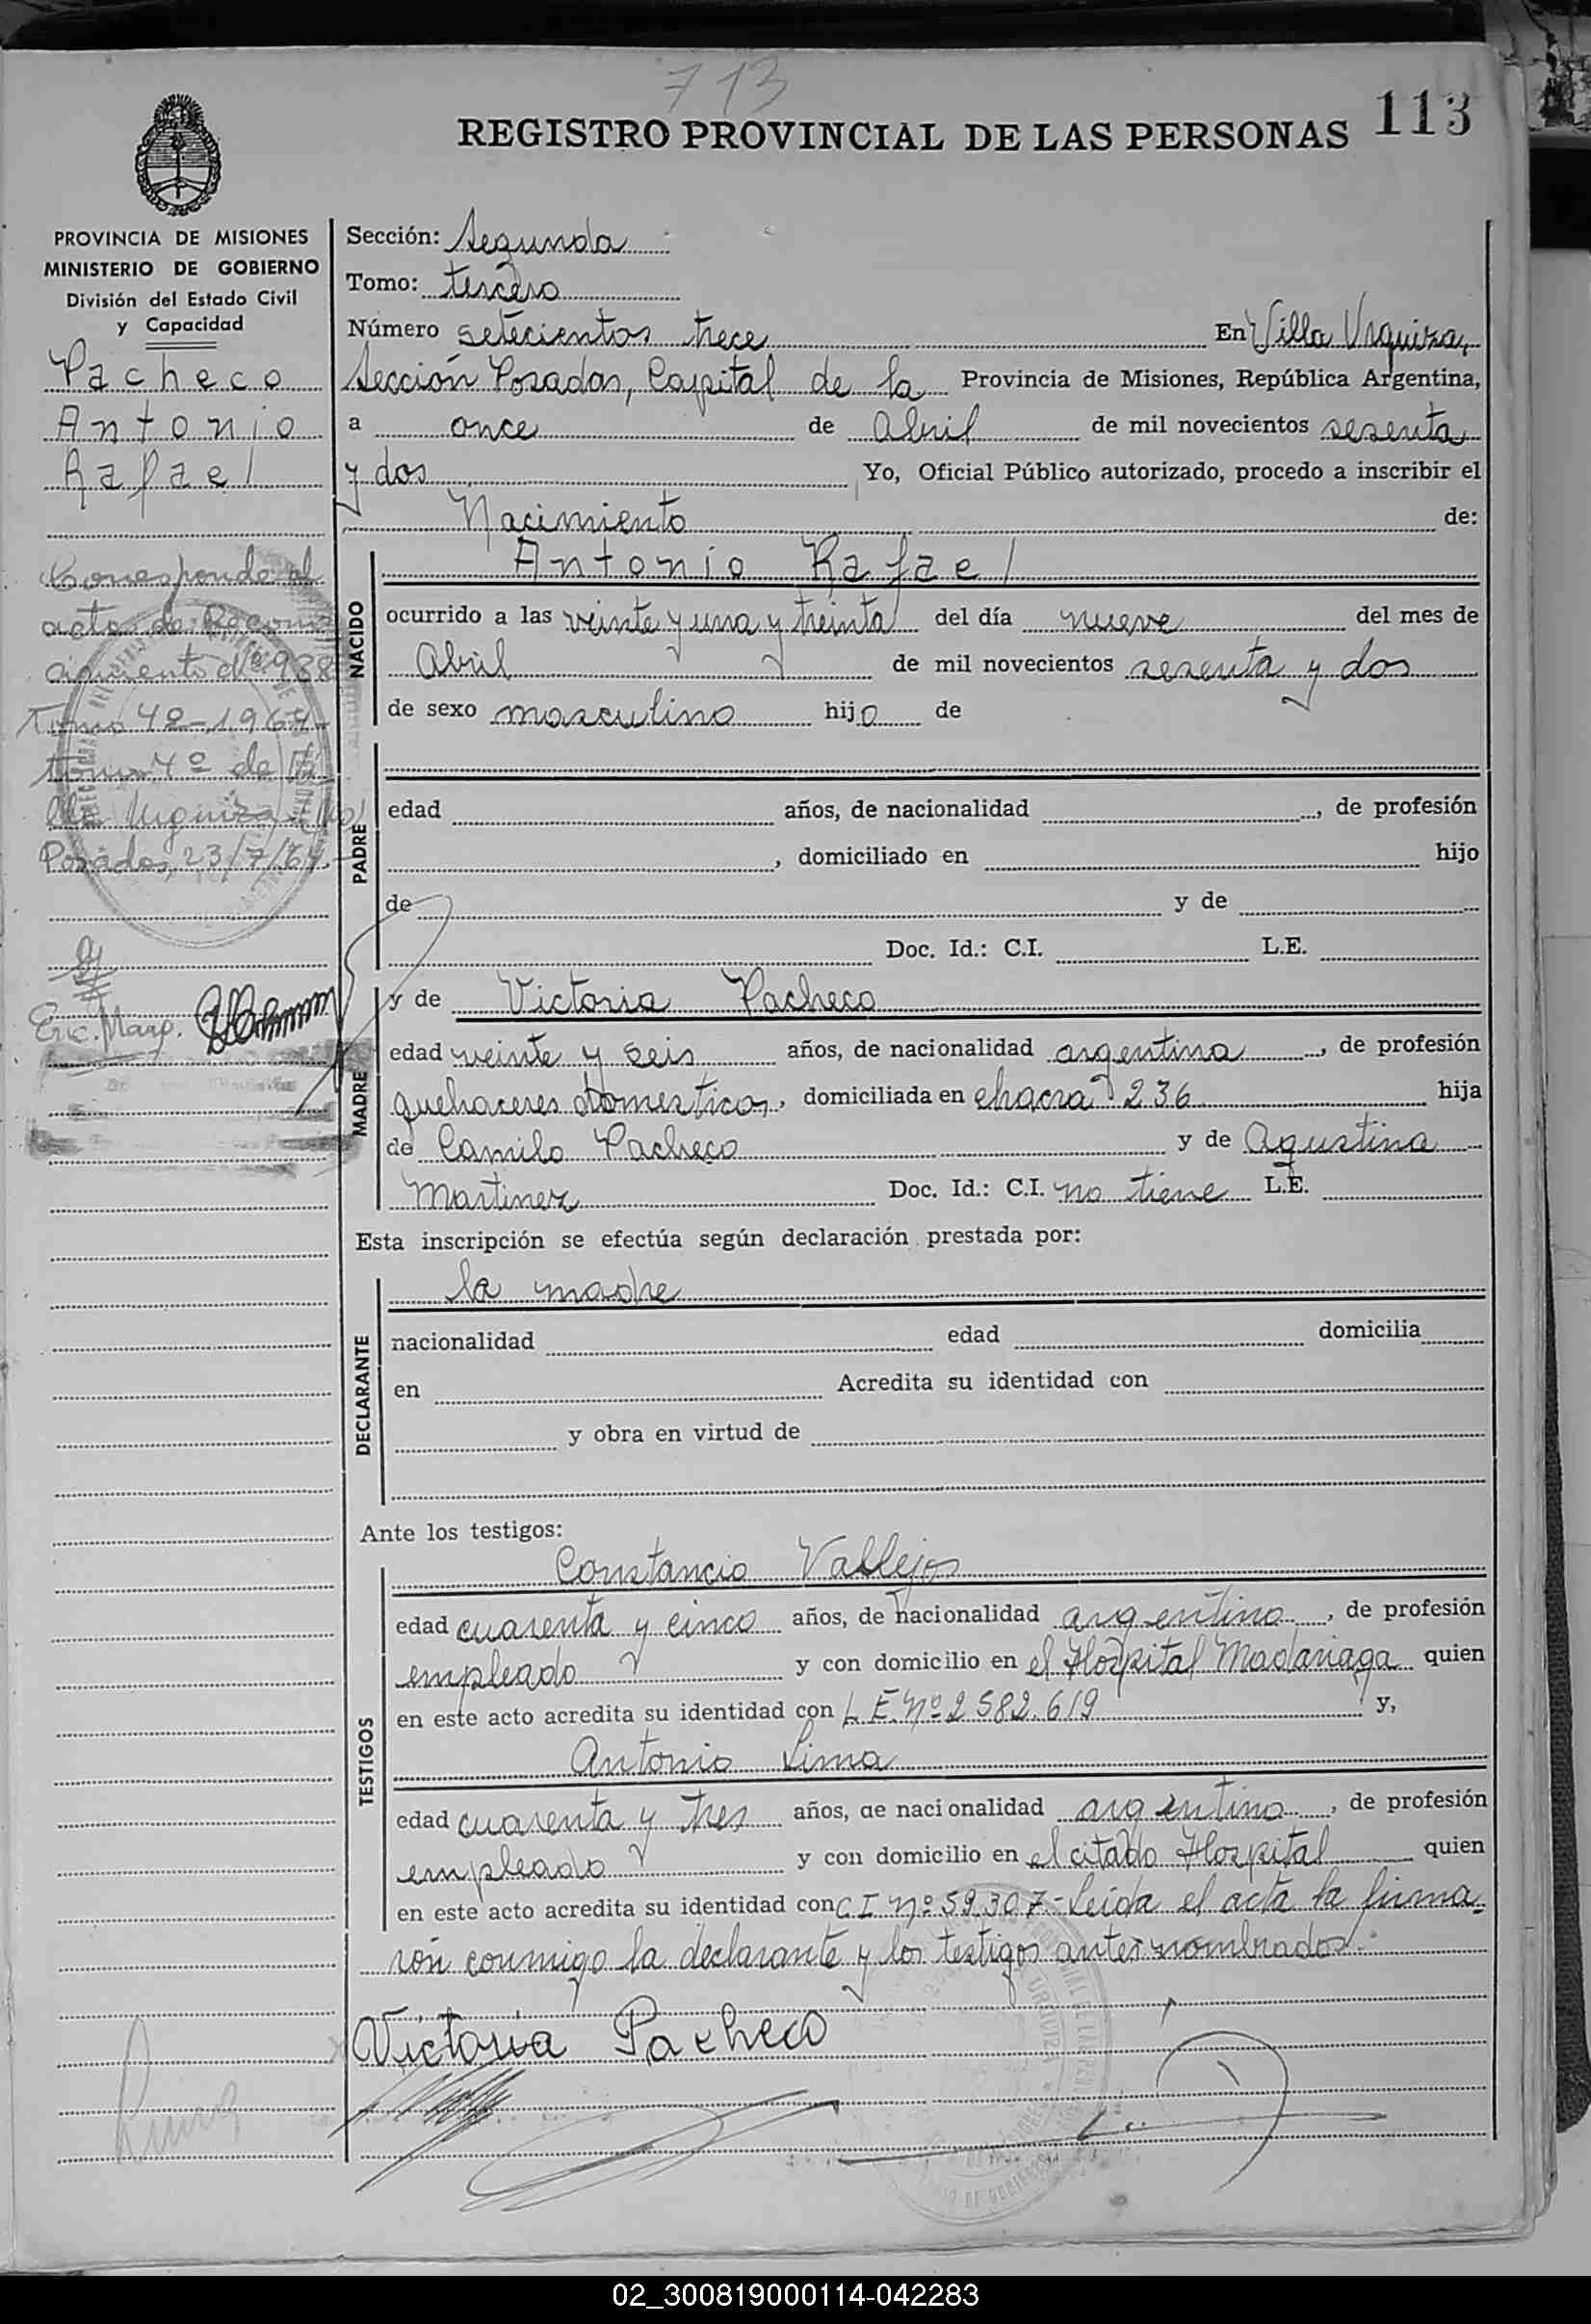 713
REGISTRO PROVINCIAL DE LAS PERSONAS 113
PROVINCIA DE MISIONES
MINISTERIO DE GOBIERNO
División del Estado Civil
y Capacidad
Pacheco
Antonio
Rafael
Corresponde al
acta de Reconoci
cimiento nº 988
Tomo 4º-1964-
tomo 4º de Vi
lla Urquiza
Posadas, 23/7/64.-
Enc. Marg.
Sección: Segunda
Tomo: tercero
Número setecientos trece En Villa Urquiza,
Sección Posadas, Capital de la Provincia de Misiones, República Argentina,
a once de Abril de mil novecientos sesenta
y dos Yo, Oficial Público autorizado, procedo a inscribir el
Nacimiento de:
NACIDO
Antonio Rafael
ocurrido a las veinte y una y treinta del día nueve del mes de
Abril de mil novecientos sesenta y dos
de sexo masculino hijo de
PADRE
edad años, de nacionalidad , de profesión
, domiciliado en hijo
de y de
Doc. Id.: C.I. L.E.
MADRE
y de Victoria Pacheco
edad veinte y seis años, de nacionalidad argentina , de profesión
quehaceres domesticos, domiciliada en chacra 236 hija
de Camilo Pacheco y de Agustina
Martinez Doc. Id.: C.I. no tiene L.E.
Esta inscripción se efectúa según declaración prestada por:
DECLARANTE
la madre
nacionalidad edad domicilia
en Acredita su identidad con
y obra en virtud de
Ante los testigos:
TESTIGOS
Constancio Vallejos
edad cuarenta y cinco años, de nacionalidad argentino , de profesión
empleado y con domicilio en el Hospital Madariaga quien
en este acto acredita su identidad con L.E. Nº 2.582.619 y,
Antonio Lima
edad cuarenta y tres años, de nacionalidad argentino , de profesión
empleado y con domicilio en el citado Hospital quien
en este acto acredita su identidad con C I Nº 59.307- Leida el acta la firma-
rón conmigo la declarante y los testigos antes nombrados.
Victoria Pacheco
02_300819000114-042283